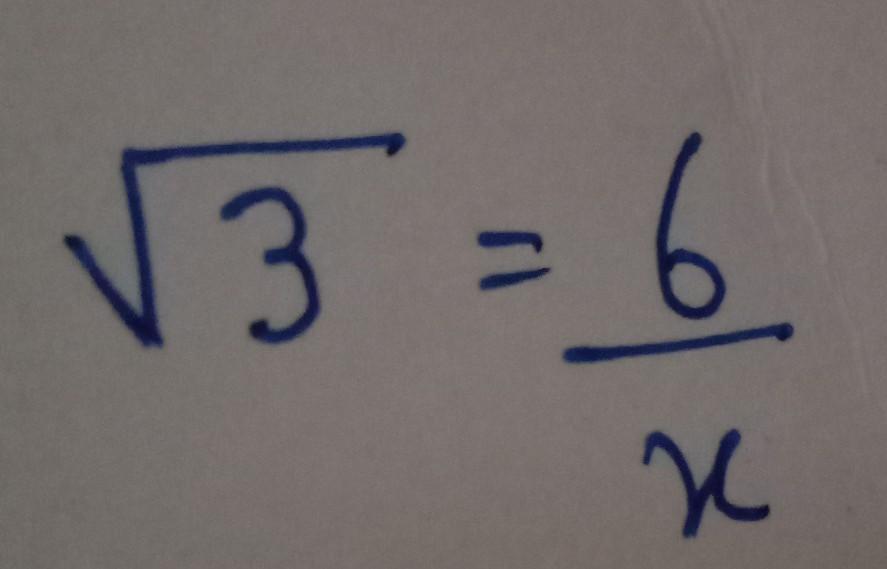 √3 = 6/x